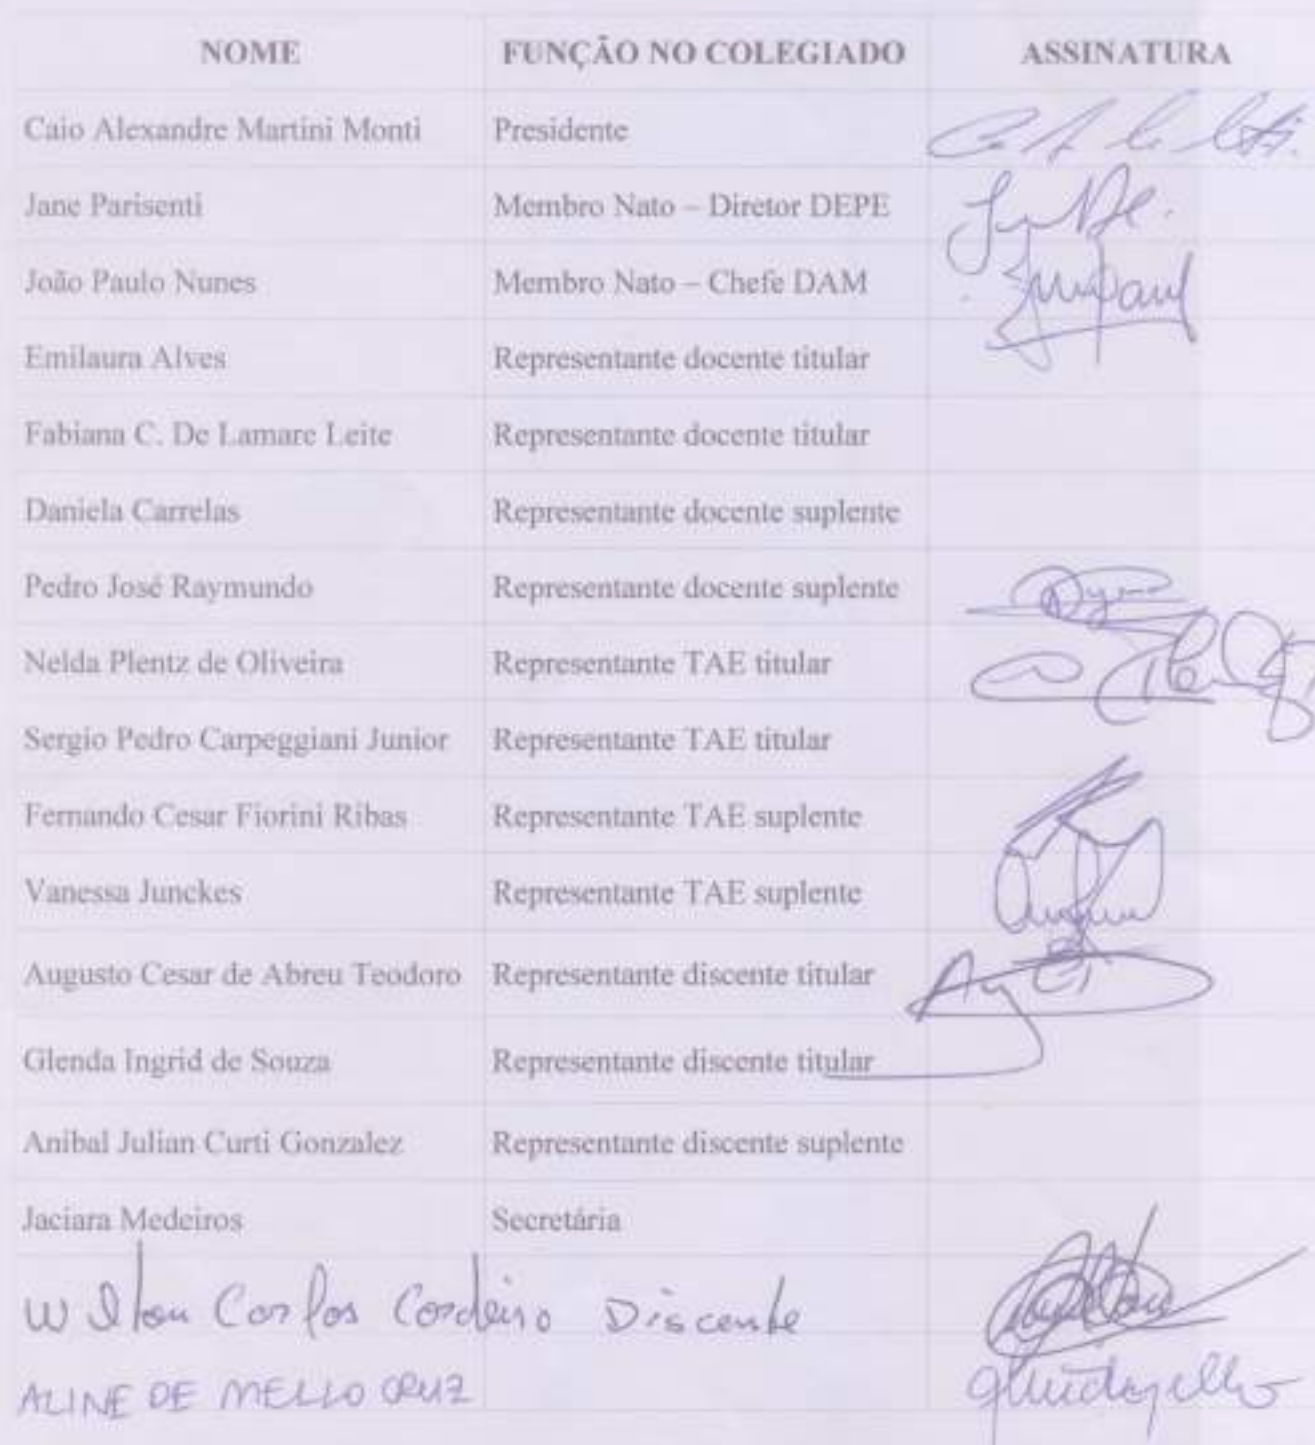 NOME FUNÇÃO NO COLEGIADO ASSINATURA
Caio Alexandre Martini Monti Presidente
Jane Parisenti Membro Nato – Diretor DEPE
João Paulo Nunes Membro Nato – Chefe DAM
Emilaura Alves Representante docente titular
Fabiana C. De Lamare Leite Representante docente titular
Daniela Carrelas Representante docente suplente
Pedro José Raymundo Representante docente suplente
Nelda Plentz de Oliveira Representante TAE titular
Sergio Pedro Carpeggiani Junior Representante TAE titular
Fernando Cesar Fiorini Ribas Representante TAE suplente
Vanessa Junckes Representante TAE suplente
Augusto Cesar de Abreu Teodoro Representante discente titular
Glenda Ingrid de Souza Representante discente titular
Anibal Julian Curti Gonzalez Representante discente suplente
Jaciara Medeiros Secretária
Wilton Carlos Cordeiro Discente
ALINE DE MELLO CRUZ